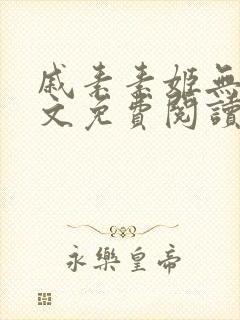 戚素素姬無
文免費閱讀
永樂皇帝